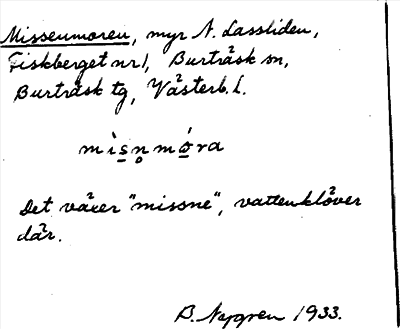 Missenmoren, myr N. Lassliden,
Fiskberget nr 1, Burträsk sn,
Burträsk tg, Västerb. l.
mìsn̥móra
Det växer "missne", vattenklöver
där.
B. Nygren 1933.